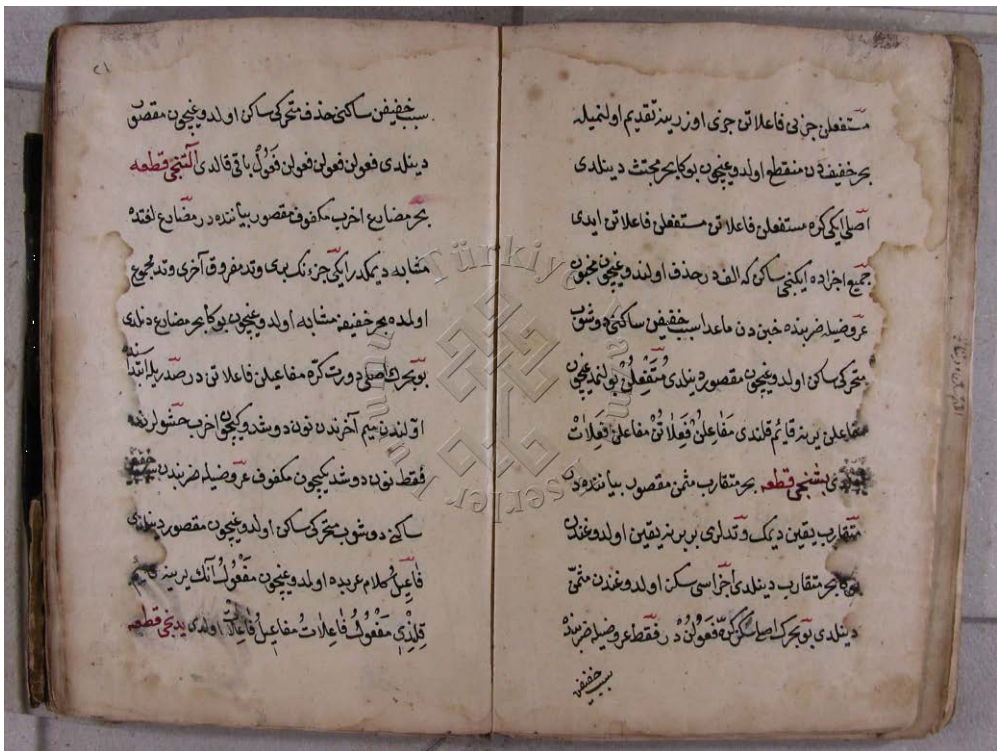 مستفعلن جزئی فاعلاتن جزئی اوزرینه تقدیم اولنمیله
بحر خفیفدن منقطع اولدوغیچون بوکا بحر مجتث دینلدی
اصلی ایکی کره مستفعلن فاعلاتن مستفعلن فاعلاتن ایدی
جمیع اجزاده ایکنجی ساکن که الفدر حذف اولندوغیچون مخبون
عروضیله ضربنده خبن دن ماعدا سبب خفیفن ساکنی دوشوب
متحرکی ساکن اولدوغیچون مقصور دینلدی مُتَفْعِلُنْ بولنمدیغیچون
مفاعلن یرینه قایم قلندی مَفَاعِلُنْ فَعِلَاتُنْ مفاعلن فَعِلَاتْ
اولدی بشنجی قطعه بحر متقارب مثمن مقصور بیاننده در
متقارب یقین دیمک وتدلری بربرینه یقین اولدوغندن
بوکا بحر متقارب دینلدی اجزاسی سکز اولدوغندن مثمن
دینلدی بو بحرک اصلی سکز کره فَعُولُنْ در فقط عروضیله ضربنده
سبب خفیفن
۲۱
سبب خفیفن ساکنی حذف متحرکی ساکن اولدوغیچون مقصور
دینلدی فعولن فعولن فعولن فَعُولْ باقی قالدی آلتنجی قطعه
بحر مضارع اخرب مکفوف مقصور بیاننده در مضارع لغتده
مشابه دیمکدر ایکی جزءنک بری وتد مفروق آخری وتد مجموع
اولده بحر خفیفه مشابه اولدوغیچون بوکا بحر مضارع دینلدی
بو بحرک اصلی دورت کره مفاعیلن فاعلاتن در صدریله ابتداسنده
اوّلندن میم آخرندن نون دوشدوکیچون اخرب حشولرنده
فقط نون دوشدیکیچون مکفوف عروضیله ضربندن سبب خفیفن
ساکنی دوشوب متحرکی ساکن اولدوغیچون مقصور دینلدی
فَاعِیلُ کلام عربده اولدوغیچون مَفْعُولُ آنک یرینه قایم
قلندی مَفْعُولُ فَاعِلاتُ مفاعیلُ فاعلاتْ اولدی یدنجی قطعه
Türkiye